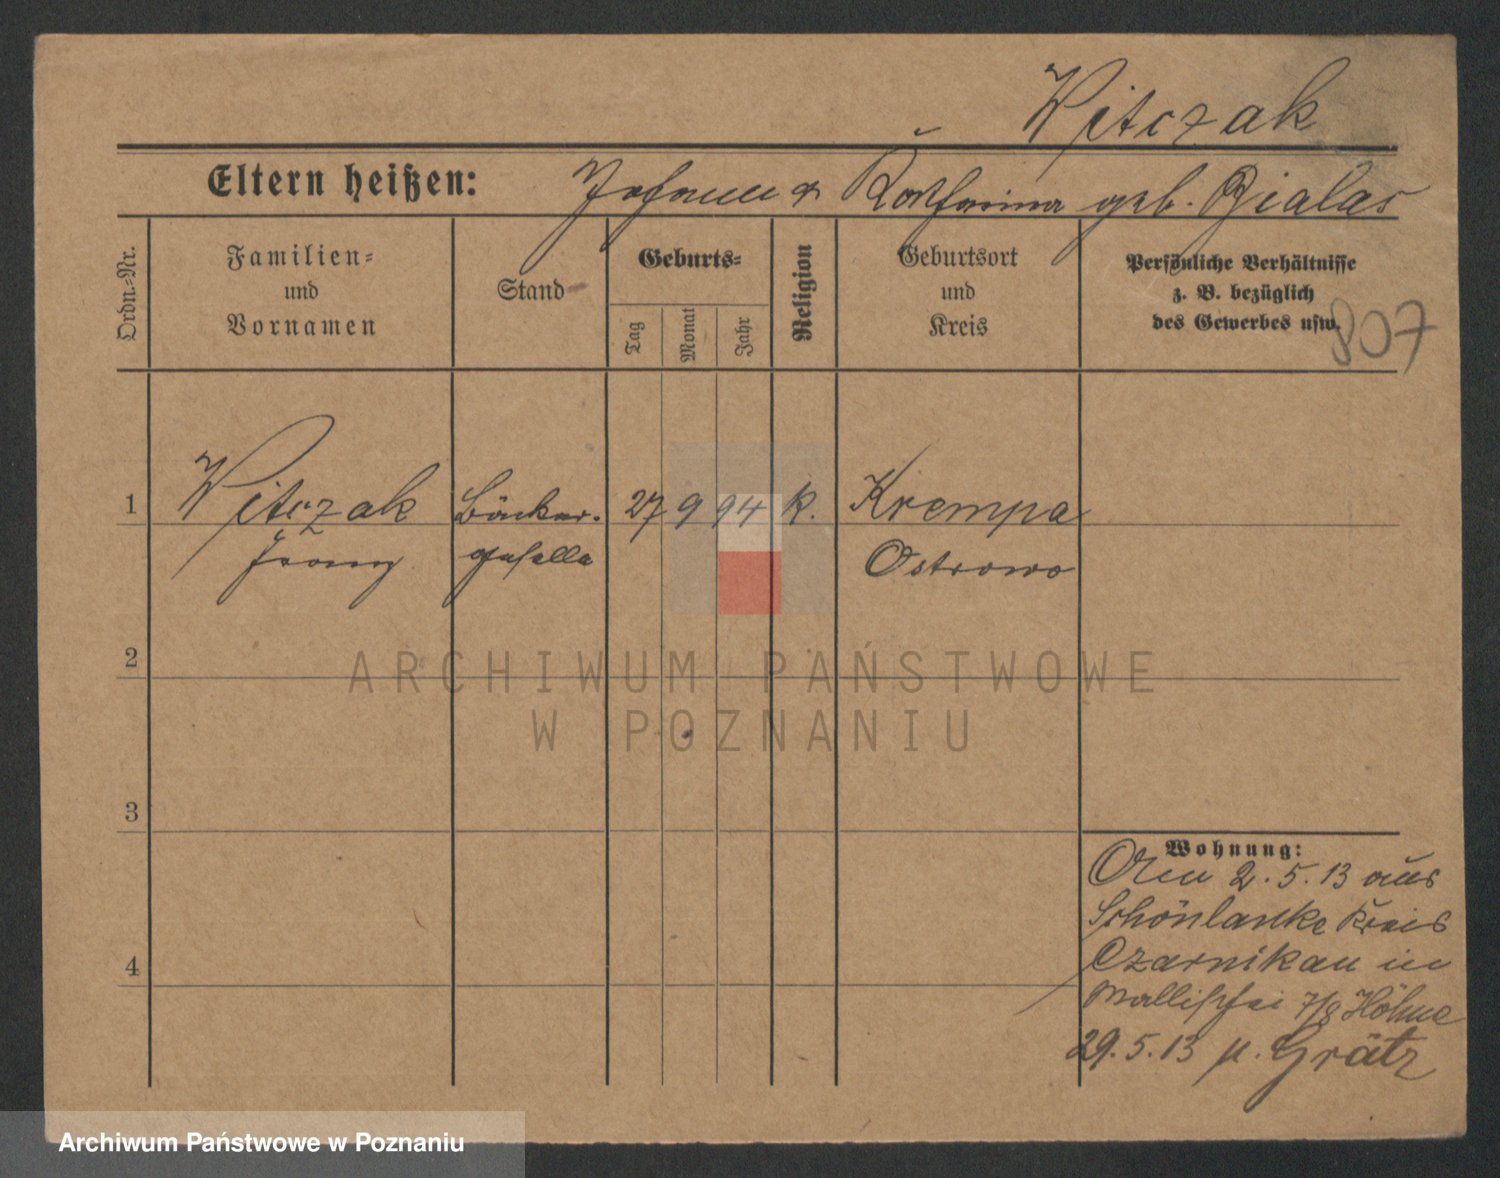 Witczak
Eltern heißen: Johann & Katharina geb. Bialas
Ordn.-Nr.
Familien-
und
Vornamen
Stand
Geburts-
Tag
Monat
Jahr
Religion
Geburtsort
und
Kreis
Persönliche Verhältnisse
z. B. bezüglich
des Gewerbes usw.
807
1 Witczak Bäcker- 27 9 94 k. Krempa
Franz geselle Ostrowo
2
3
4
Wohnung:
Am 2.5.13 aus
Schönlanke Kreis
Czarnikau in
Wallischei 7/8 Höhne
29.5.13 n. Grätz
ARCHIWUM PAŃSTWOWE
W POZNANIU
Archiwum Państwowe w Poznaniu